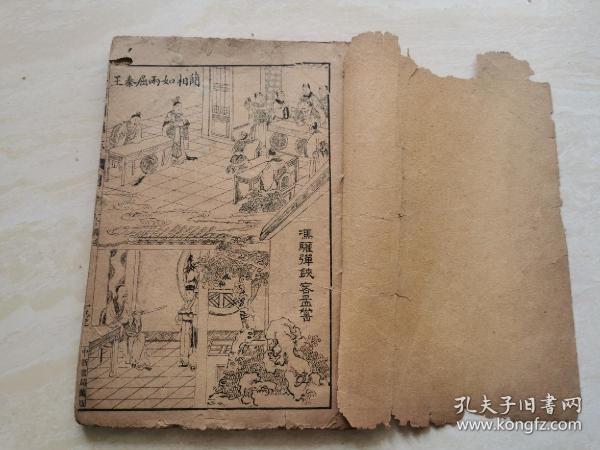 藺相如兩屈秦王
馮驩彈鋏客孟嘗
孔夫子旧书网
www.kongfz.com